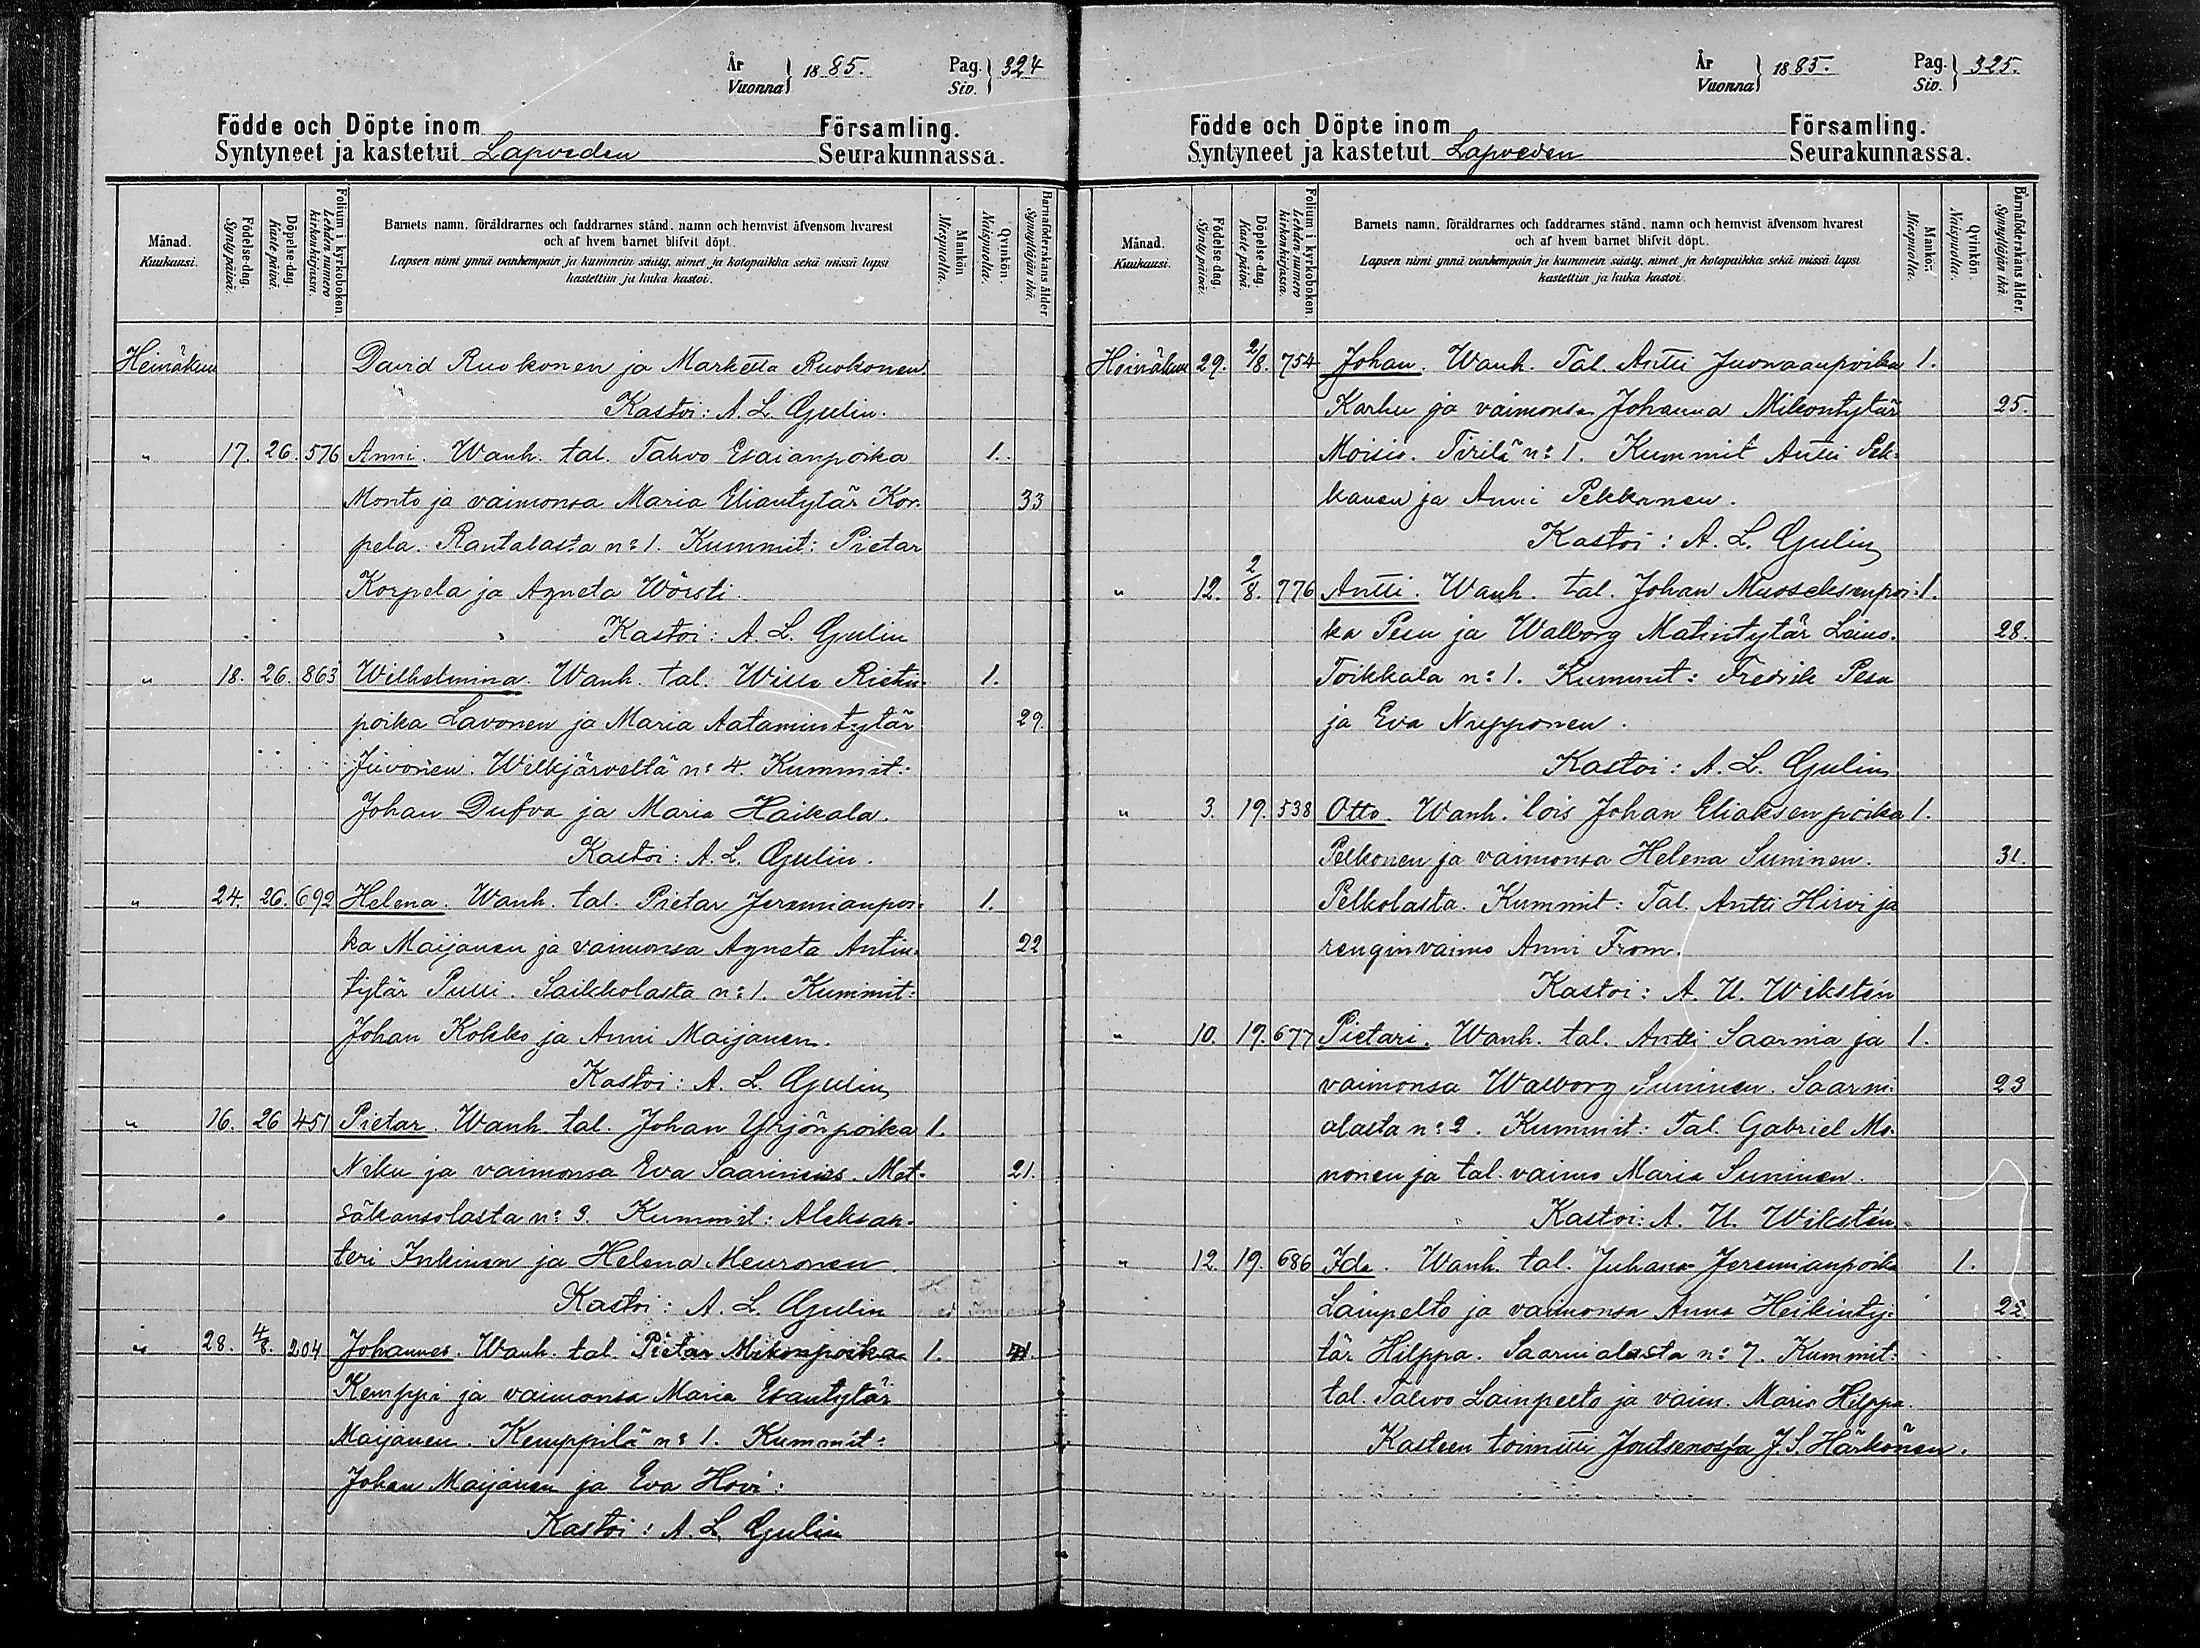 År
Vuonna } 1885.
Pag.
Siv. } 324
Födde och Döpte inom Församling.
Syntyneet ja kastetut Lapveden Seurakunnassa.
Månad.
Kuukausi.
Födelse-dag.
Syntypäivä.
Döpelse-dag.
Kastepäivä.
Folium i kyrkoboken
Lehden numero
kirkonkirjassa.
Barnets namn, föräldrarnes och faddrarnes stånd, namn och hemvist äfvensom hvarest
och af hvem barnet blifvit döpt.
Lapsen nimi ynnä vanhempain ja kummein sääty, nimet ja kotopaikka sekä missä lapsi
kastettiin ja kuka kastoi.
Mankön
Miespuolia.
Qvinkön.
Naispuolia.
Barnaföderskans ålder
Synnyttäjän ikä.
Heinäkuu David Ruokonen ja Marketta Ruokonen.
Kastoi: A. L. Gulin.
" 17. 26. 576 Anni. Wanh. tal. Tahvo Esaianpoika 1.
Monto ja vaimonsa Maria Eliantytär Kor- 33
pela. Rantalasta n:o 1. Kummit: Pietar
Korpela ja Agneta Wörsti
Kastoi: A. L. Gulin
" 18. 26. 863 Wilhelmina. Wanh. tal. Wille Rietu- 1.
poika Lavonen ja Maria Aatamintytär 29.
Juvonen. Welkjärveltä n:o 4. Kummit:
Johan Dufva ja Maria Haikala.
Kastoi: A. L. Gulin.
" 24. 26. 692 Helena. Wanh. tal. Pietar Jeremianpoi- 1.
ka Maijanen ja vaimonsa Agneta Antin- 22
tytär Pulli. Saikkolasta n:o 1. Kummit:
Johan Kokko ja Anni Maijanen.
Kastoi: A. L. Gulin
" 16. 26 451 Pietar. Wanh. tal. Johan Yrjönpoika 1.
Niku ja vaimonsa Eva Saarimies. Met- 21.
säkansolasta n:o 9. Kummit: Aleksan-
teri Inkinen ja Helena Meuronen.
Kastoi: A. L. Gulin
" 28. 4/8. 204 Johannes. Wanh. tal. Pietar Mikonpoika 1. 41.
Kemppi ja vaimonsa Maria Esantytär
Maijanen. Kemppilä n:o 1. Kummit:
Johan Maijanen ja Eva Hovi:
Kastoi: A. L. Gulin
År
Vuonna } 1885.
Pag.
Siv. } 325.
Födde och Döpte inom Församling.
Syntyneet ja kastetut Lapveden Seurakunnassa.
Månad.
Kuukausi.
Födelse-dag.
Syntypäivä.
Döpelse-dag.
Kastepäivä.
Folium i kyrkoboken
Lehden numero
kirkonkirjassa.
Barnets namn, föräldrarnes och faddrarnes stånd, namn och hemvist äfvensom hvarest
och af hvem barnet blifvit döpt.
Lapsen nimi ynnä vanhempain ja kummein sääty, nimet ja kotopaikka sekä missä lapsi
kastettiin ja kuka kastoi.
Mankön.
Miespuolia.
Qvinkön.
Naispuolia.
Barnaföderskans ålder.
Synnyttäjän ikä.
Heinäkuu 29. 2/8. 754 Johan. Wanh. Tal. Antti Juonaanpoika 1.
Karhu ja vaimonsa Johanna Mikontytär 25.
Moisio. Tirilä n:o 1. Kummit Antti Pek-
kanen ja Anni Pekkanen.
Kastoi: A. L. Gulin
" 12. 2/8. 776 Antti. Wanh. tal. Johan Mooseksenpoi- 1.
ka Pesu ja Walborg Matintytär Leino. 28.
Toikkala n:o 1. Kummit: Fredrik Pesu
ja Eva Nupponen.
Kastoi: A. L. Gulin
" 3. 19. 538 Otto. Wanh. lois Johan Eliaksenpoika 1.
Pelkonen ja vaimonsa Helena Suninen. 31.
Pelkolasta. Kummit: Tal. Antti Hirvi ja
renginvaimo Anni From.
Kastoi: A. U. Wikstén
" 10. 19. 677 Pietari. Wanh. tal. Antti Saarnia ja 1.
vaimonsa Walborg Suninen. Saarni- 23
alasta n:o 2. Kummit: Tal. Gabriel Mo-
nonen ja tal. vaimo Maria Suninen.
Kastoi: A. U. Wikstén
" 12. 19. 686 Ida. Wanh. tal. Juhana Jeremianpoika 1.
Lainpelto ja vaimonsa Anna Heikinty- 22.
tär Hilppa. Saarnialasta n:o 7. Kummit:
tal. Tahvo Lainpelto ja vaim. Maria Hilppa.
Kasteen toimitti Joutsenossa J. S. Härkönen.